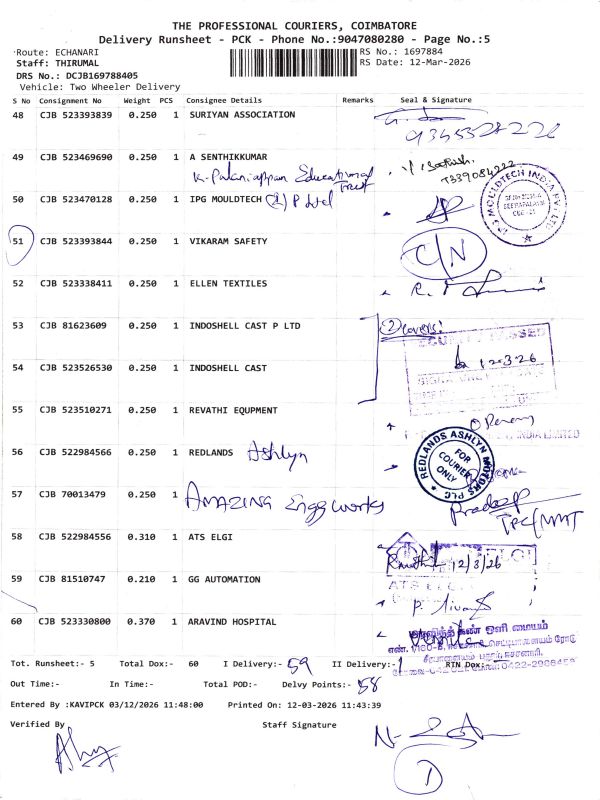 THE PROFESSIONAL COURIERS, COIMBATORE
Delivery Runsheet - PCK - Phone No.:9047080280 - Page No.:5
Route: ECHANARI RS No.: 1697884
Staff: THIRUMAL RS Date: 12-Mar-2026
DRS No.: DCJB169788405
Vehicle: Two Wheeler Delivery
S No Consignment No Weight PCS Consignee Details Remarks Seal & Signature
48 CJB 523393839 0.250 1 SURIYAN ASSOCIATION
49 CJB 523469690 0.250 1 A SENTHIKKUMAR
K. Palaniappan Educational Trust
50 CJB 523470128 0.250 1 IPG MOULDTECH (I) P Ltd
51 CJB 523393844 0.250 1 VIKARAM SAFETY C/N
52 CJB 523338411 0.250 1 ELLEN TEXTILES
53 CJB 81623609 0.250 1 INDOSHELL CAST P LTD (2) covers:
12-3-26
54 CJB 523526530 0.250 1 INDOSHELL CAST
55 CJB 523510271 0.250 1 REVATHI EQUPMENT
56 CJB 522984566 0.250 1 REDLANDS Ashlyn
REDLANDS ASHLYN MOTORS PLC
FOR COURIER ONLY
57 CJB 70013479 0.250 1 AMAZING Engg works
Pradeep
58 CJB 522984556 0.310 1 ATS ELGI
12/3/26
59 CJB 81510747 0.210 1 GG AUTOMATION
60 CJB 523330800 0.370 1 ARAVIND HOSPITAL
Tot. Runsheet:- 5 Total Dox:- 60 I Delivery:- 59 II Delivery:- 1 RTN Dox:-
Out Time:- In Time:- Total POD:- Delvy Points:- 58
Entered By :KAVIPCK 03/12/2026 11:48:00 Printed On: 12-03-2026 11:43:39
Verified By Staff Signature